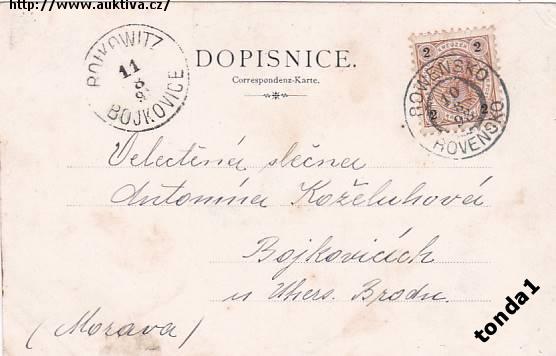 http://www.auktiva.cz/
BOJKOWITZ
11
8
9
BOJKOVICE
DOPISNICE.
Correspondenz-Karte.
2 KREUZER 2
2 2
ROWENSKO
10
98
ROVENSKO
Velectěná slečna
Antonína Koželuhová
Bojkovicích
u Uhers. Brodu.
(Morava)
tonda1